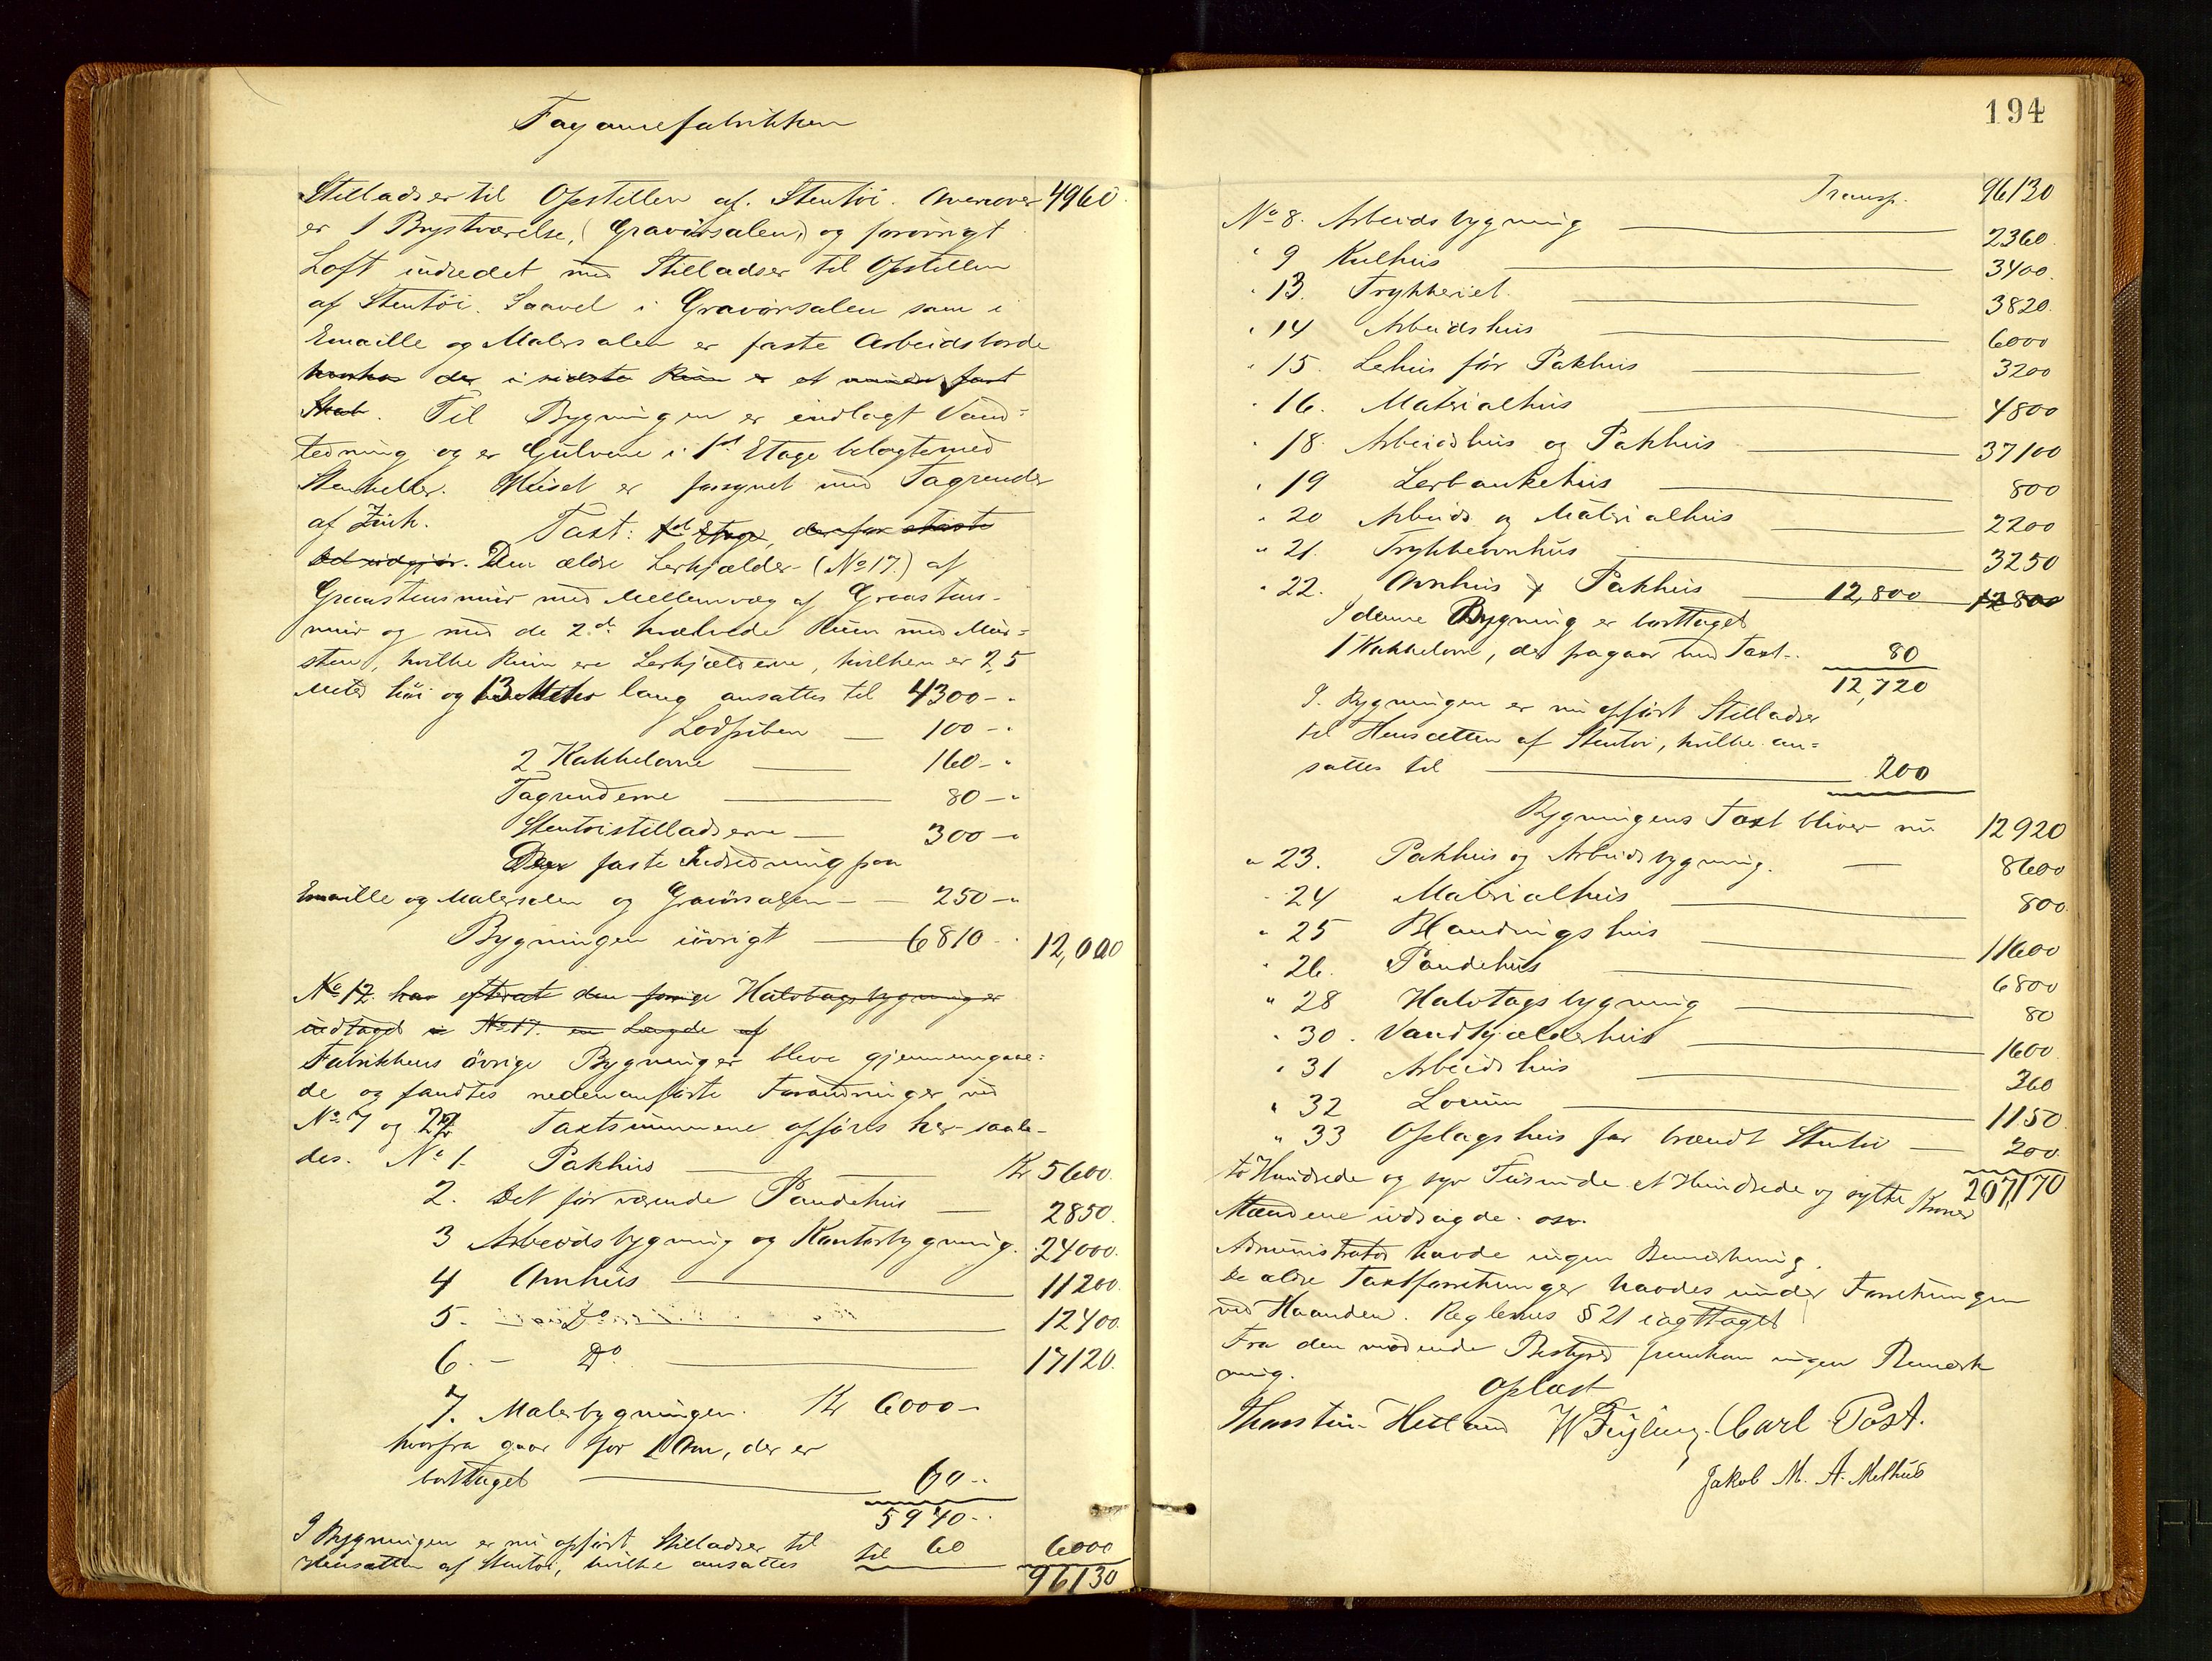 Fayancefabrikken
Stilladser til Opstillen af Stentöi. Ovenover 4960.
er 1 Brystværelse, (Gravörsalen) og forövrigt
Loft indredet med Stilladser til Opstillen
af Stentöi. Saavel i Gravörsalen som i
Emaille og Malersalen er faste Arbeidsborde
der i sidste Rum er et mindre fast
Skab. Til Bygningen er indlagt Vand-
ledning og er Gulvene i 1st Etage belagte med
Stenheller. Huset er forsynet med Tagrender
af Zink. Taxt: 1st Etage, den
Det udgjör. Den ældre Lerkjælder (No 17.) af
Graastensmuur med Mellemvæg af Graastens-
muur og med de 2de hvælvede Rum med Mur-
sten, hvilke Rum ere Lerkjælderne, hvilken er 2,5
Meter höi og 13 Meter lang ansattes til 4300 - "
Lodpiben — 100 - "
2 Kakkelovne — 160 - "
Tagrenderne — 80 - "
Stentöistilladserne — 300 - "
Den faste Indredning paa
Emaille og Malersalen og Gravörsalen — 250 - "
Bygningen iövrigt — 6810 - " 12,000
No 12. har efterat den forrige Halvtagsbygning er
indtaget i No 17. en Længde af
Fabrikkens övrige Bygninger bleve gjennemgaae-
de og fandtes nedenanförte Forandringer ved
No 7 og 22 Taxtsummene opföres her saale-
des. No 1. Pakhuus — Kr 5600.
2. Det för værende Pandehus — 2850.
3 Arbeidsbygning og Kontorbygning. 24000.
4 Ovnhuus — 11200.
5. Do — 12400.
6. - Do — 17120.
7. Malerbygningen. Kr 6000 -
hvorfra gaar for 1 Ovn, der er
borttaget — 60 - "
5940 - "
I Bygningen er nu opfört Stilladser til
Hensætten af Stentöi, hvilke ansattes til 60 6000
96130
194
Transp. 96130
No 8. Arbeidsbygning — 2360.
" 9 Kulhuus — 3400.
" 13. Trykkeriet — 3820.
" 14 Arbeidshuus — 6000
" 15. Lehuus för Pakhuus — 3200
" 16. Materialhuus — 4800
" 18. Arbeidshuus og Pakhuus — 37100
" 19 Lerbankehuus — 800
" 20 Arbeids og Materialhuus — 2200
" 21. Trykkeovnhuus — 3250
" 22. Ovnhuus & Pakhuus — 12,800 12800
I denne Bygning er borttaget
1 Kakkelovn, der fragaar med Taxt. 80
12,720
I Bygningen er nu opfört Stilladser
til Hensætten af Stentöi, hvilke an-
sattes til — 200
Bygningens Taxt bliver nu 12920
" 23. Pakhuus og Arbeidsbygning. — 8600
" 24 Materialhuus — 800.
" 25 Blandingshuus — 11600
" 26. Pandehuus — 6800
" 28 Halvtagsbygning — 80
" 30. Vandkjælderhuus — 1600.
" 31 Arbeidshuus — 360
" 32 Locum — 1150.
" 33 Oplagshuus for brændt Stentöi — 200.
to Hundrede og syv Tusinde et Hundrede og sytti Kroner 207,170
Mændene udsagde osv.
Administrator havde ingen Bemærkning.
De ældre Taxtforretninger havdes under Forretningen
ved Haanden. Reglernes § 21 iagttaget
Fra den mödende Bestyrer fremkom ingen Bemærk
ning.
Oplæst
Thorstein Hetland W Fuglung. Carl Post.
Jakob M. A. Melhuus